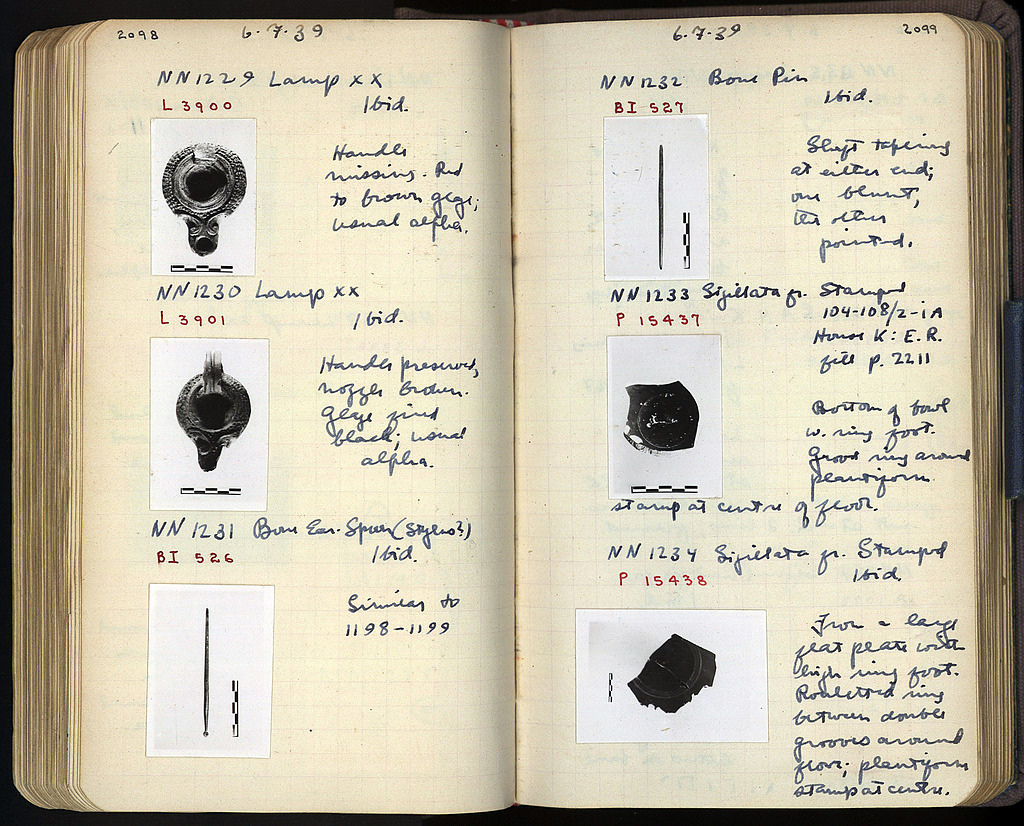 2098
6·7·39
NN1229 Lamp XX
L 3900
Ibid.
Handle
missing. Red
to brown glaze;
usual alpha.
NN1230 Lamp XX
L 3901
Ibid.
Handle preserved,
nozzle broken.
Glaze fired
black; usual
alpha.
NN1231 Bone Ear-Spoon (Stylus?)
BI 526
Ibid.
Similar to
1198-1199
6·7·39
2099
NN1232 Bone Pin
BI 527
Ibid.
Shaft tapering
at either end;
one blunt,
the other
pointed.
NN1233 Sigillata fr. Stamped
P 15437
104-108/2-1A
House K: E.R.
fill p. 2211
Bottom of bowl
w. ring foot.
Groove ring around
plantiform
stamp at centre of floor.
NN1234 Sigillata fr. Stamped
P 15438
Ibid.
From a large
flat plate with
high ring foot.
Rouletted ring
between double
grooves around
floor; plantiform
stamp at centre.